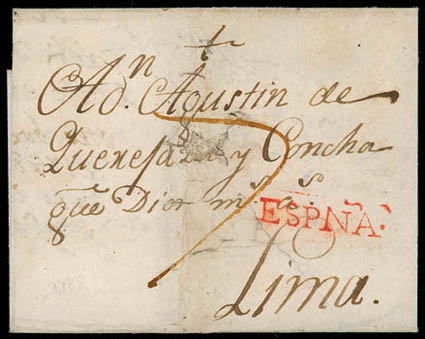 A Dn. Agustin de
Querejazu y Concha
que Dios ms. as.
ESPÑA.
7
Lima.